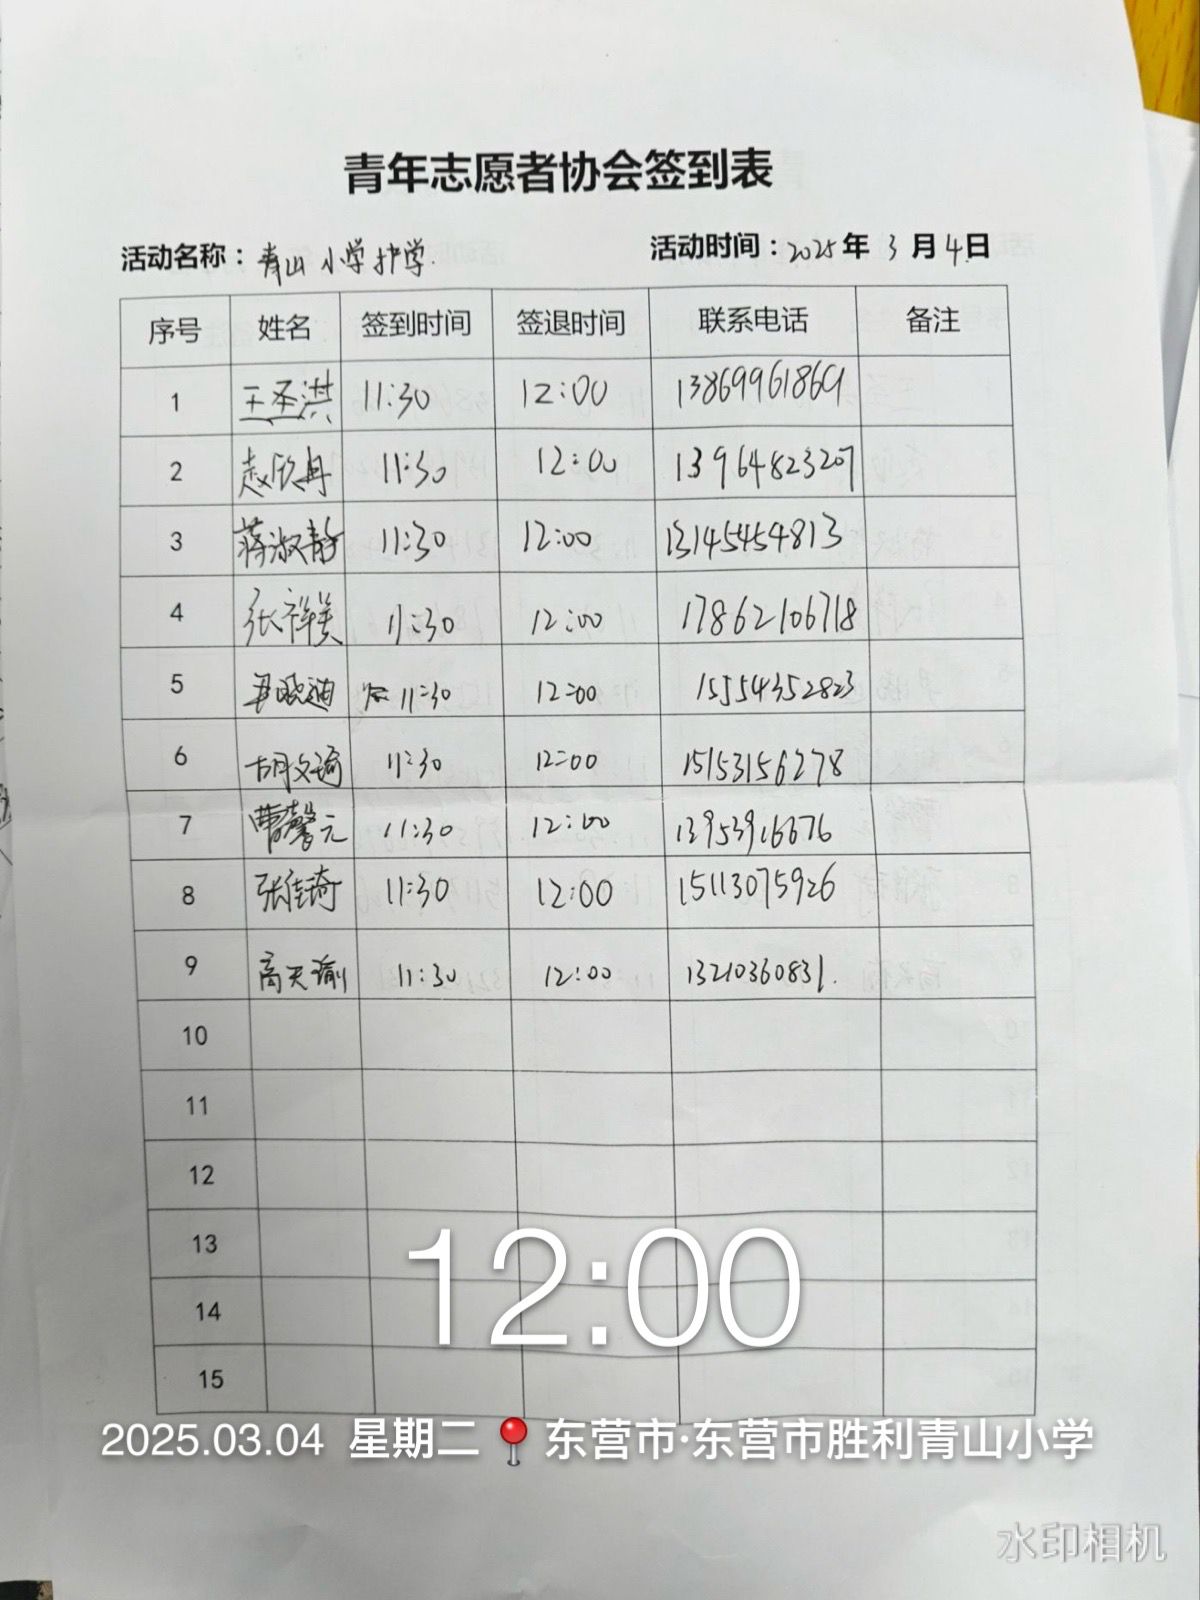 青年志愿者协会签到表
活动名称：青山小学护学. 活动时间：2025年3月4日
序号 姓名 签到时间 签退时间 联系电话 备注
1 王圣洪 11:30 12:00 13869961869
2 赵欣冉 11:30 12:00 13964823207
3 蒋淑静 11:30 12:00 13145454813
4 张祥美 11:30 12:00 17862106718
5 尹晓迪 11:30 12:00 15554352823
6 胡文瑜 11:30 12:00 15153156278
7 曹馨元 11:30 12:00 13953916676
8 张佳琦 11:30 12:00 15113075926
9 高天瑜 11:30 12:00 13210360831.
10
11
12
13
14
15
12:00
2025.03.04 星期二 东营市·东营市胜利青山小学
水印相机